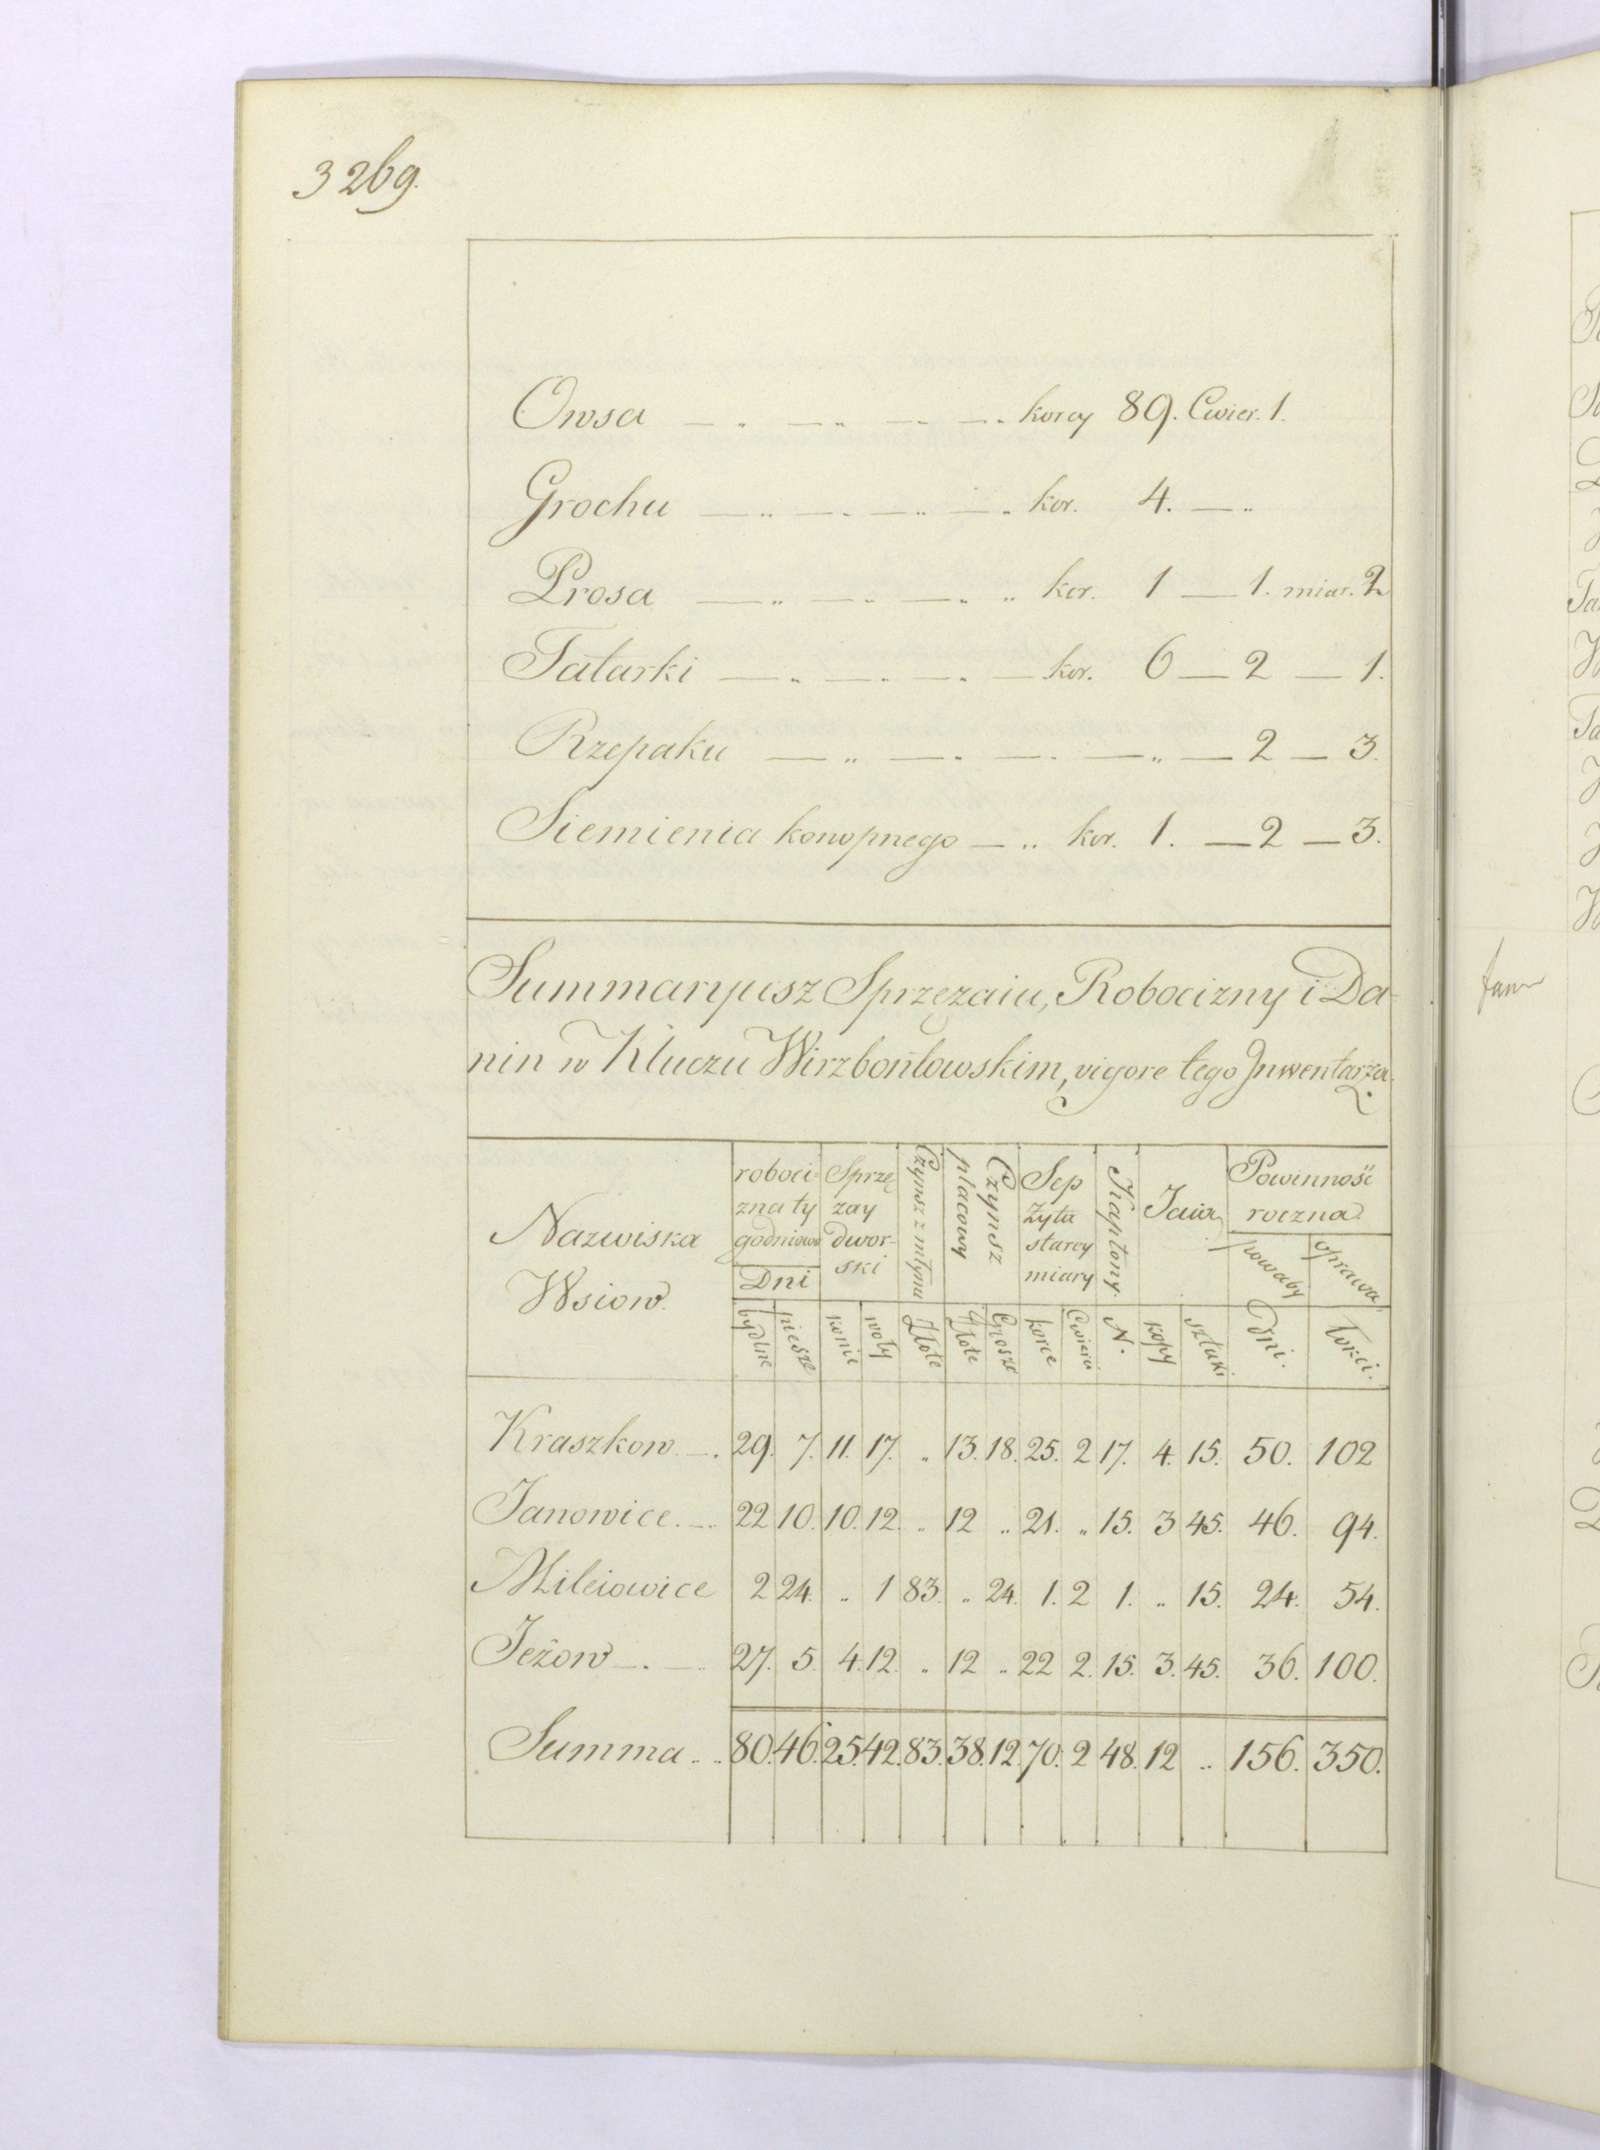 3269.
Owsa — „ — „ — „ — „ korcy 89. Cwier. 1.
Grochu — „ — „ — „ — „ kor. 4. — „
Prosa — „ — „ — „ „ kor. 1 — 1. miar. 2
Tatarki — „ — „ — „ — kor. 6 — 2 — 1.
Rzepaku — „ — „ — „ — „ — 2 — 3.
Siemienia konopnego — „ kor. 1. — 2 — 3.
Summaryusz Sprzęzaiu, Robocizny i Da-
nin w Kluczu Wirzbońtowskim, vigore tego Inwentarza.
Nazwiska Wsiow. | roboci- zna ty godniowa Dni | Sprzę zay dwor- ski | Czynsz z młynu | Czynsz placowy | Sep żyta starey miary | Kapłony. | Iaia | Powinność roczna
powaby | oprawa
bydlne | piesze | konie | woły | Złote | Złote | Grosze | korce | Cwierci | N. | kopy | sztuki | Dni. | Łokci.
Kraszkow — . 29. 7. 11. 17. „ 13. 18. 25. 2 17. 4. 15. 50. 102
Janowice. — 22 10. 10. 12. „ 12 „ 21. „ 15. 3 45. 46. 94.
Mileiowice 2 24. „ 1 83. „ 24. 1. 2 1. „ 15. 24. 54.
Jeżow — . — 27. 5. 4. 12. „ 12 „ 22 2. 15. 3. 45. 36. 100.
Summa . . 80. 46. 25. 42. 83. 38. 12. 70. 2 48. 12 „ 156. 350.